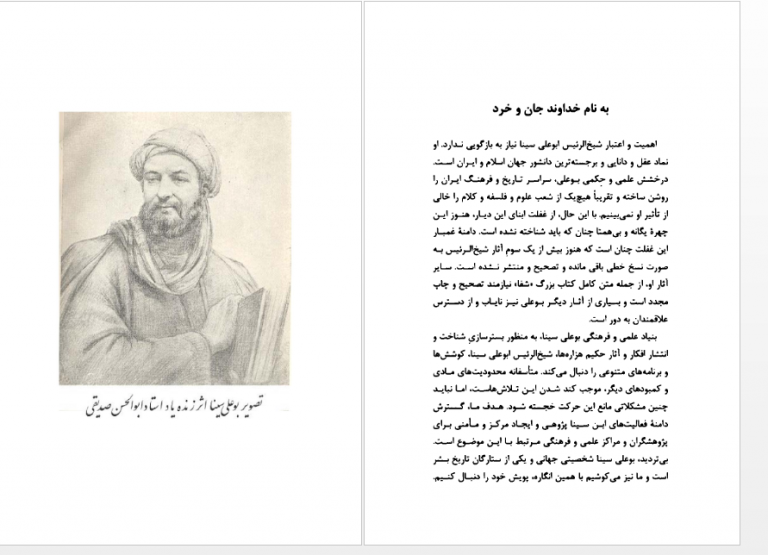 به نام خداوند جان و خرد
اهمیت و اعتبار شیخ‌الرئیس ابوعلی سینا نیاز به بازگویی ندارد. او
نماد عقل و دانایی و برجسته‌ترین دانشور جهان اسلام و ایران است.
درخشش علمی و حِکمی بوعلی، سراسر تاریخ و فرهنگ ایران را
روشن ساخته و تقریباً هیچ‌یک از شعب علوم و فلسفه و کلام را خالی
از تأثیر او نمی‌بینیم. با این حال، از غفلت ابنای این دیار، هنوز این
چهرهٔ یگانه و بی‌همتا چنان که باید شناخته نشده است. دامنهٔ غمبار
این غفلت چنان است که هنوز بیش از یک سوم آثار شیخ‌الرئیس به
صورت نسخ خطی باقی مانده و تصحیح و منتشر نشده است. سایر
آثار او، از جمله متن کامل کتاب بزرگ «شفا» نیازمند تصحیح و چاپ
مجدد است و بسیاری از آثار دیگر بوعلی نیز نایاب و از دسترس
علاقمندان به دور است.
بنیاد علمی و فرهنگی بوعلی سینا، به منظور بسترسازیِ شناخت و
انتشار افکار و آثار حکیم هزاره‌ها، شیخ‌الرئیس ابوعلی سینا، کوشش‌ها
و برنامه‌های متنوعی را دنبال می‌کند. متأسفانه محدودیت‌های مادی
و کمبودهای دیگر، موجب کند شدن این تلاش‌هاست، اما نباید
چنین مشکلاتی مانع این حرکت خجسته شود. هدف ما، گسترش
دامنهٔ فعالیت‌های ابن سینا پژوهی و ایجاد مرکز و مأمنی برای
پژوهشگران و مراکز علمی و فرهنگی مرتبط با این موضوع است.
بی‌تردید، بوعلی سینا شخصیتی جهانی و یکی از ستارگان تاریخ بشر
است و ما نیز می‌کوشیم با همین انگاره، پویش خود را دنبال کنیم.
تصویر بوعلی سینا اثر زنده یاد استاد ابوالحسن صدیقی